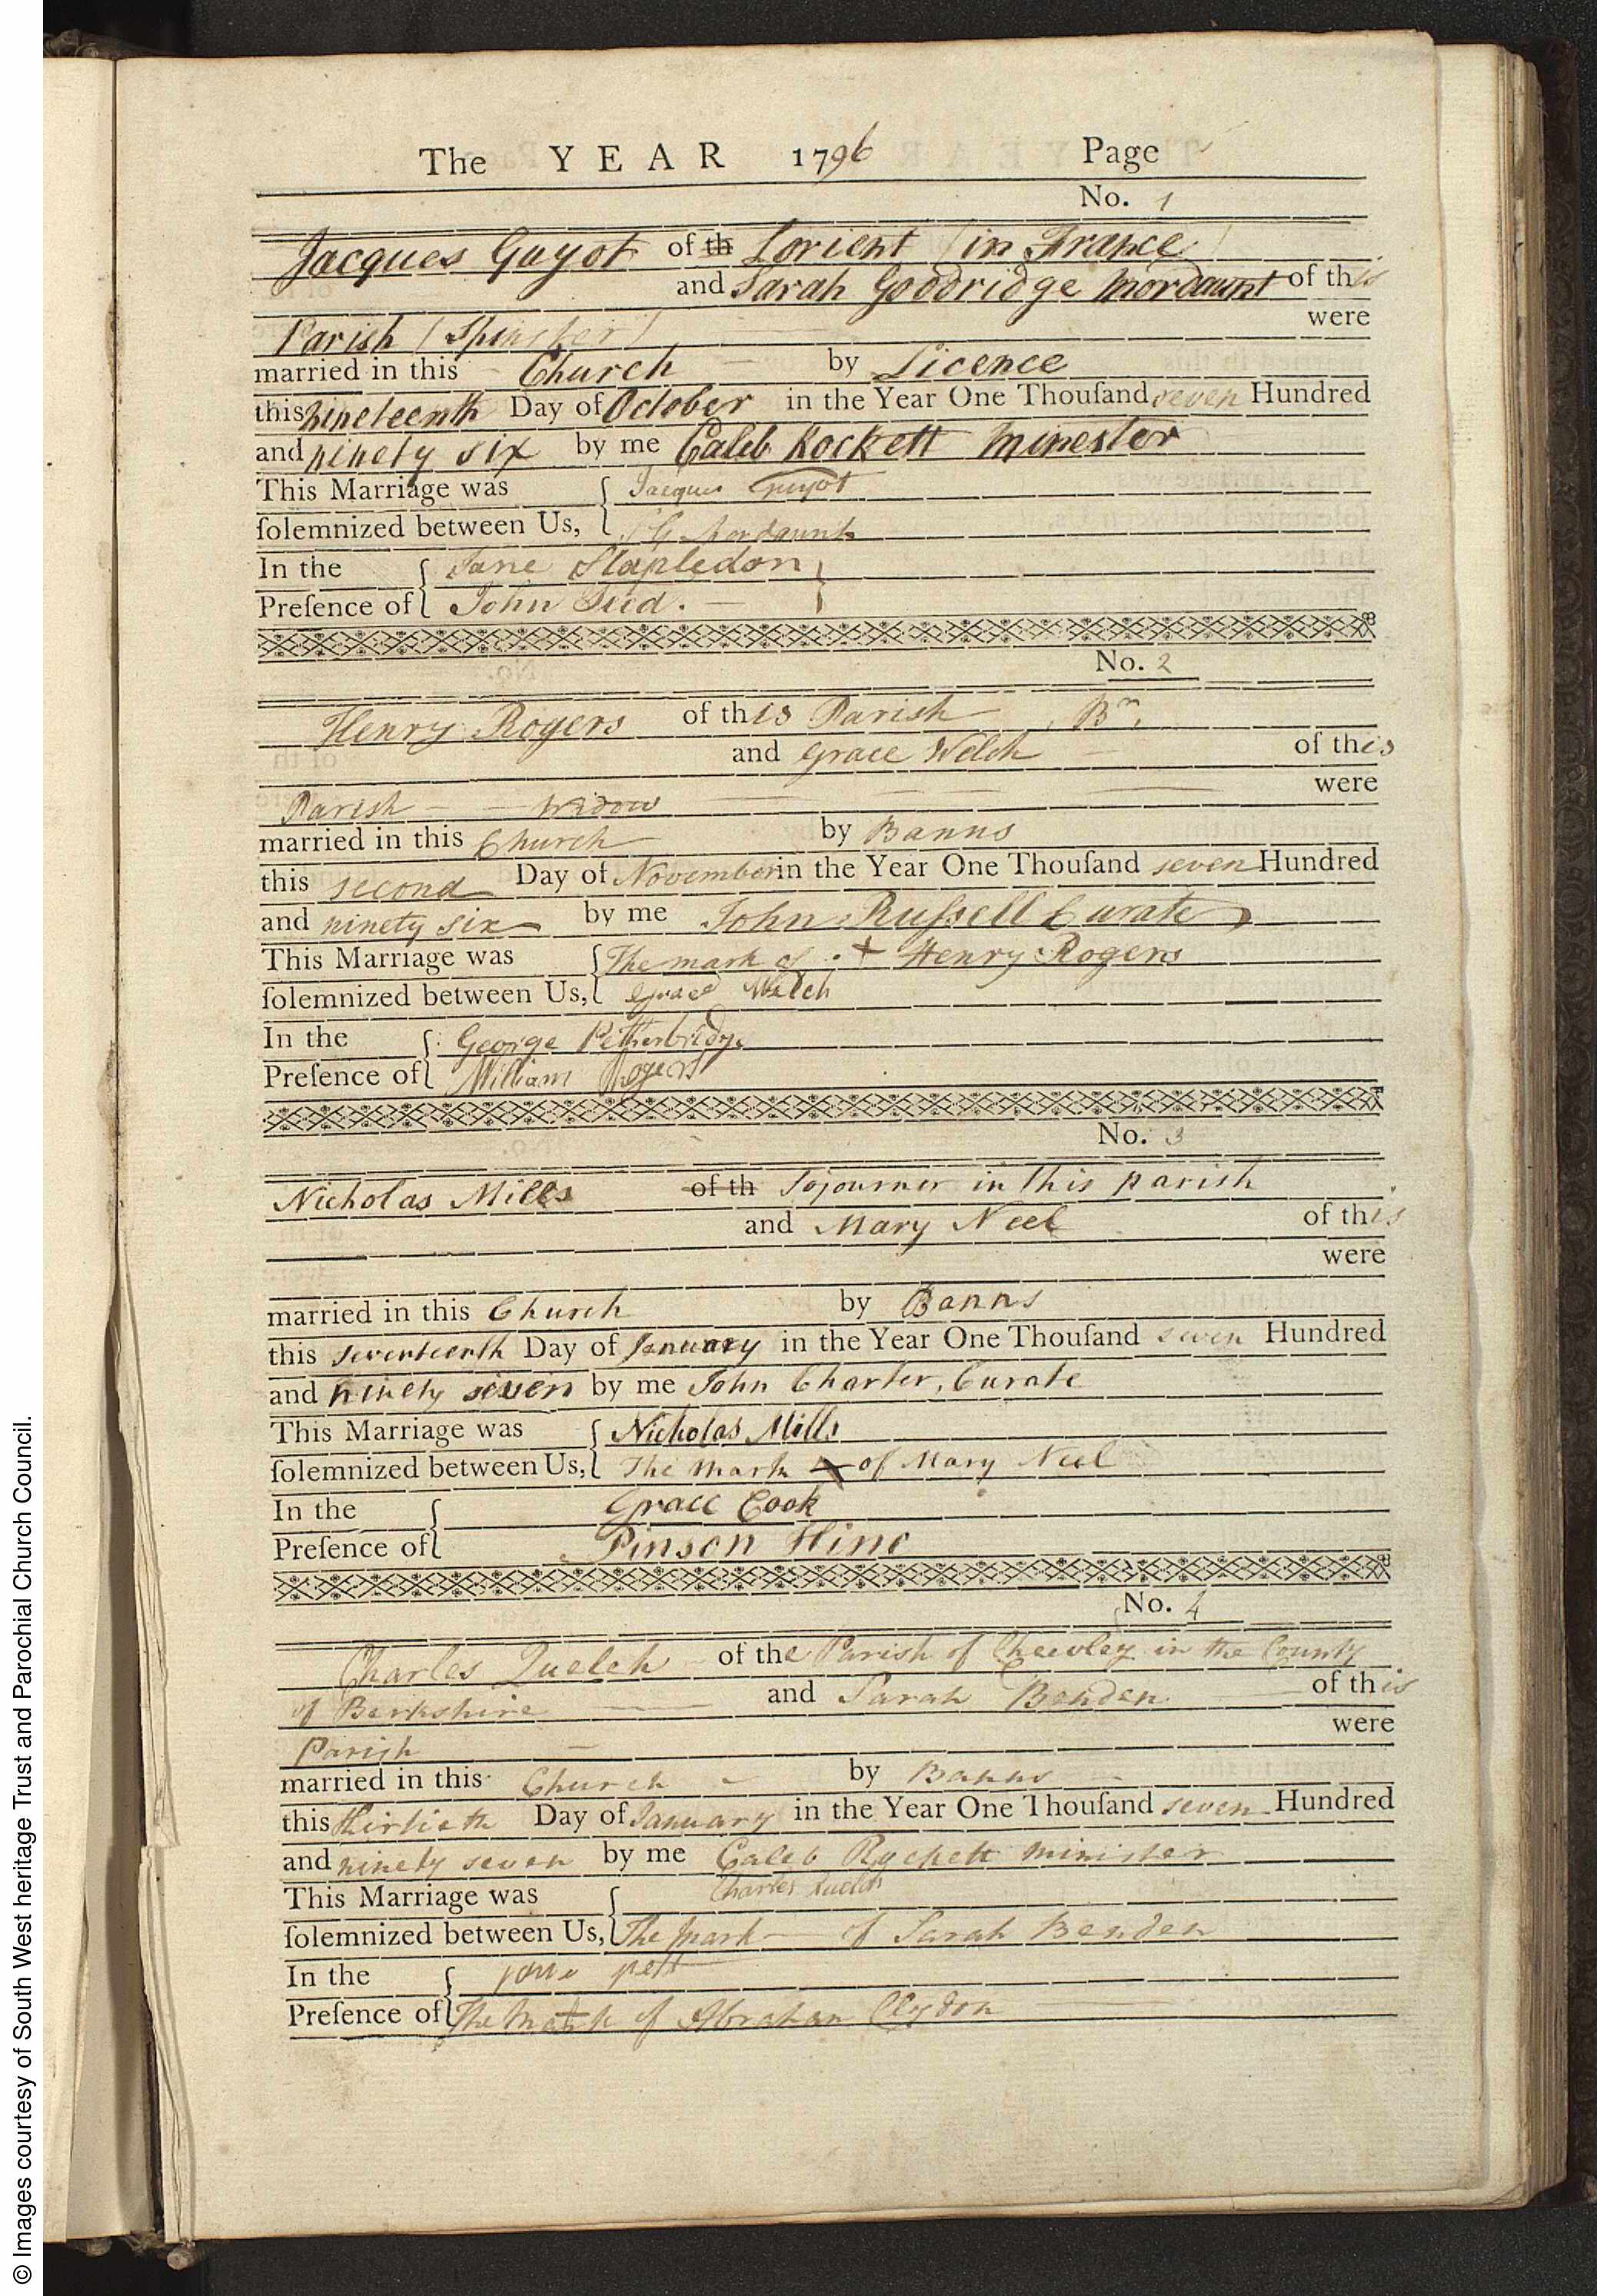 The YEAR 1796 Page
No. 1
Jacques Guyot of th Lorient (in France)
and Sarah Goodridge Mordaunt of this
Parish (Spinster) were
married in this Church by Licence
this nineteenth Day of October in the Year One Thouſand seven Hundred
and ninety six by me Caleb Rockett Minester
This Marriage was { Jacques Guyot
ſolemnized between Us, { S G Mordaunt
In the { Jane Stapledon
Preſence of { John
No. 2
Henry Rogers of this Parish Br.
and Grace Welch of this
Parish Widow were
married in this Church by Banns
this second Day of November in the Year One Thouſand seven Hundred
and ninety six by me John Ruſsell Curate
This Marriage was { The mark of + Henry Rogers
ſolemnized between Us, { Grace Welch
In the { George Petherbridge
Preſence of { William Rogers
No. 3
Nicholas Mills of th Sojourner in this parish
and Mary Neel of this
were
married in this Church by Banns
this seventeenth Day of January in the Year One Thouſand seven Hundred
and ninety seven by me John Charter, Curate
This Marriage was { Nicholas Mills
ſolemnized between Us, { The mark X of Mary Neel
In the { Grace Cook
Preſence of { Pinson Hine
No. 4
Charles Quelch of the Parish of Cheevley in the County
of Berkshire and Sarah Benden of this
Parish were
married in this Church by Banns
this thirtieth Day of January in the Year One Thouſand seven Hundred
and ninety seven by me Caleb Rockett Minister
This Marriage was { Charles Quelch
ſolemnized between Us, { The mark of Sarah Benden
In the {
Preſence of { The Mark of Abraham Clysdon
© Images courtesy of South West heritage Trust and Parochial Church Council.